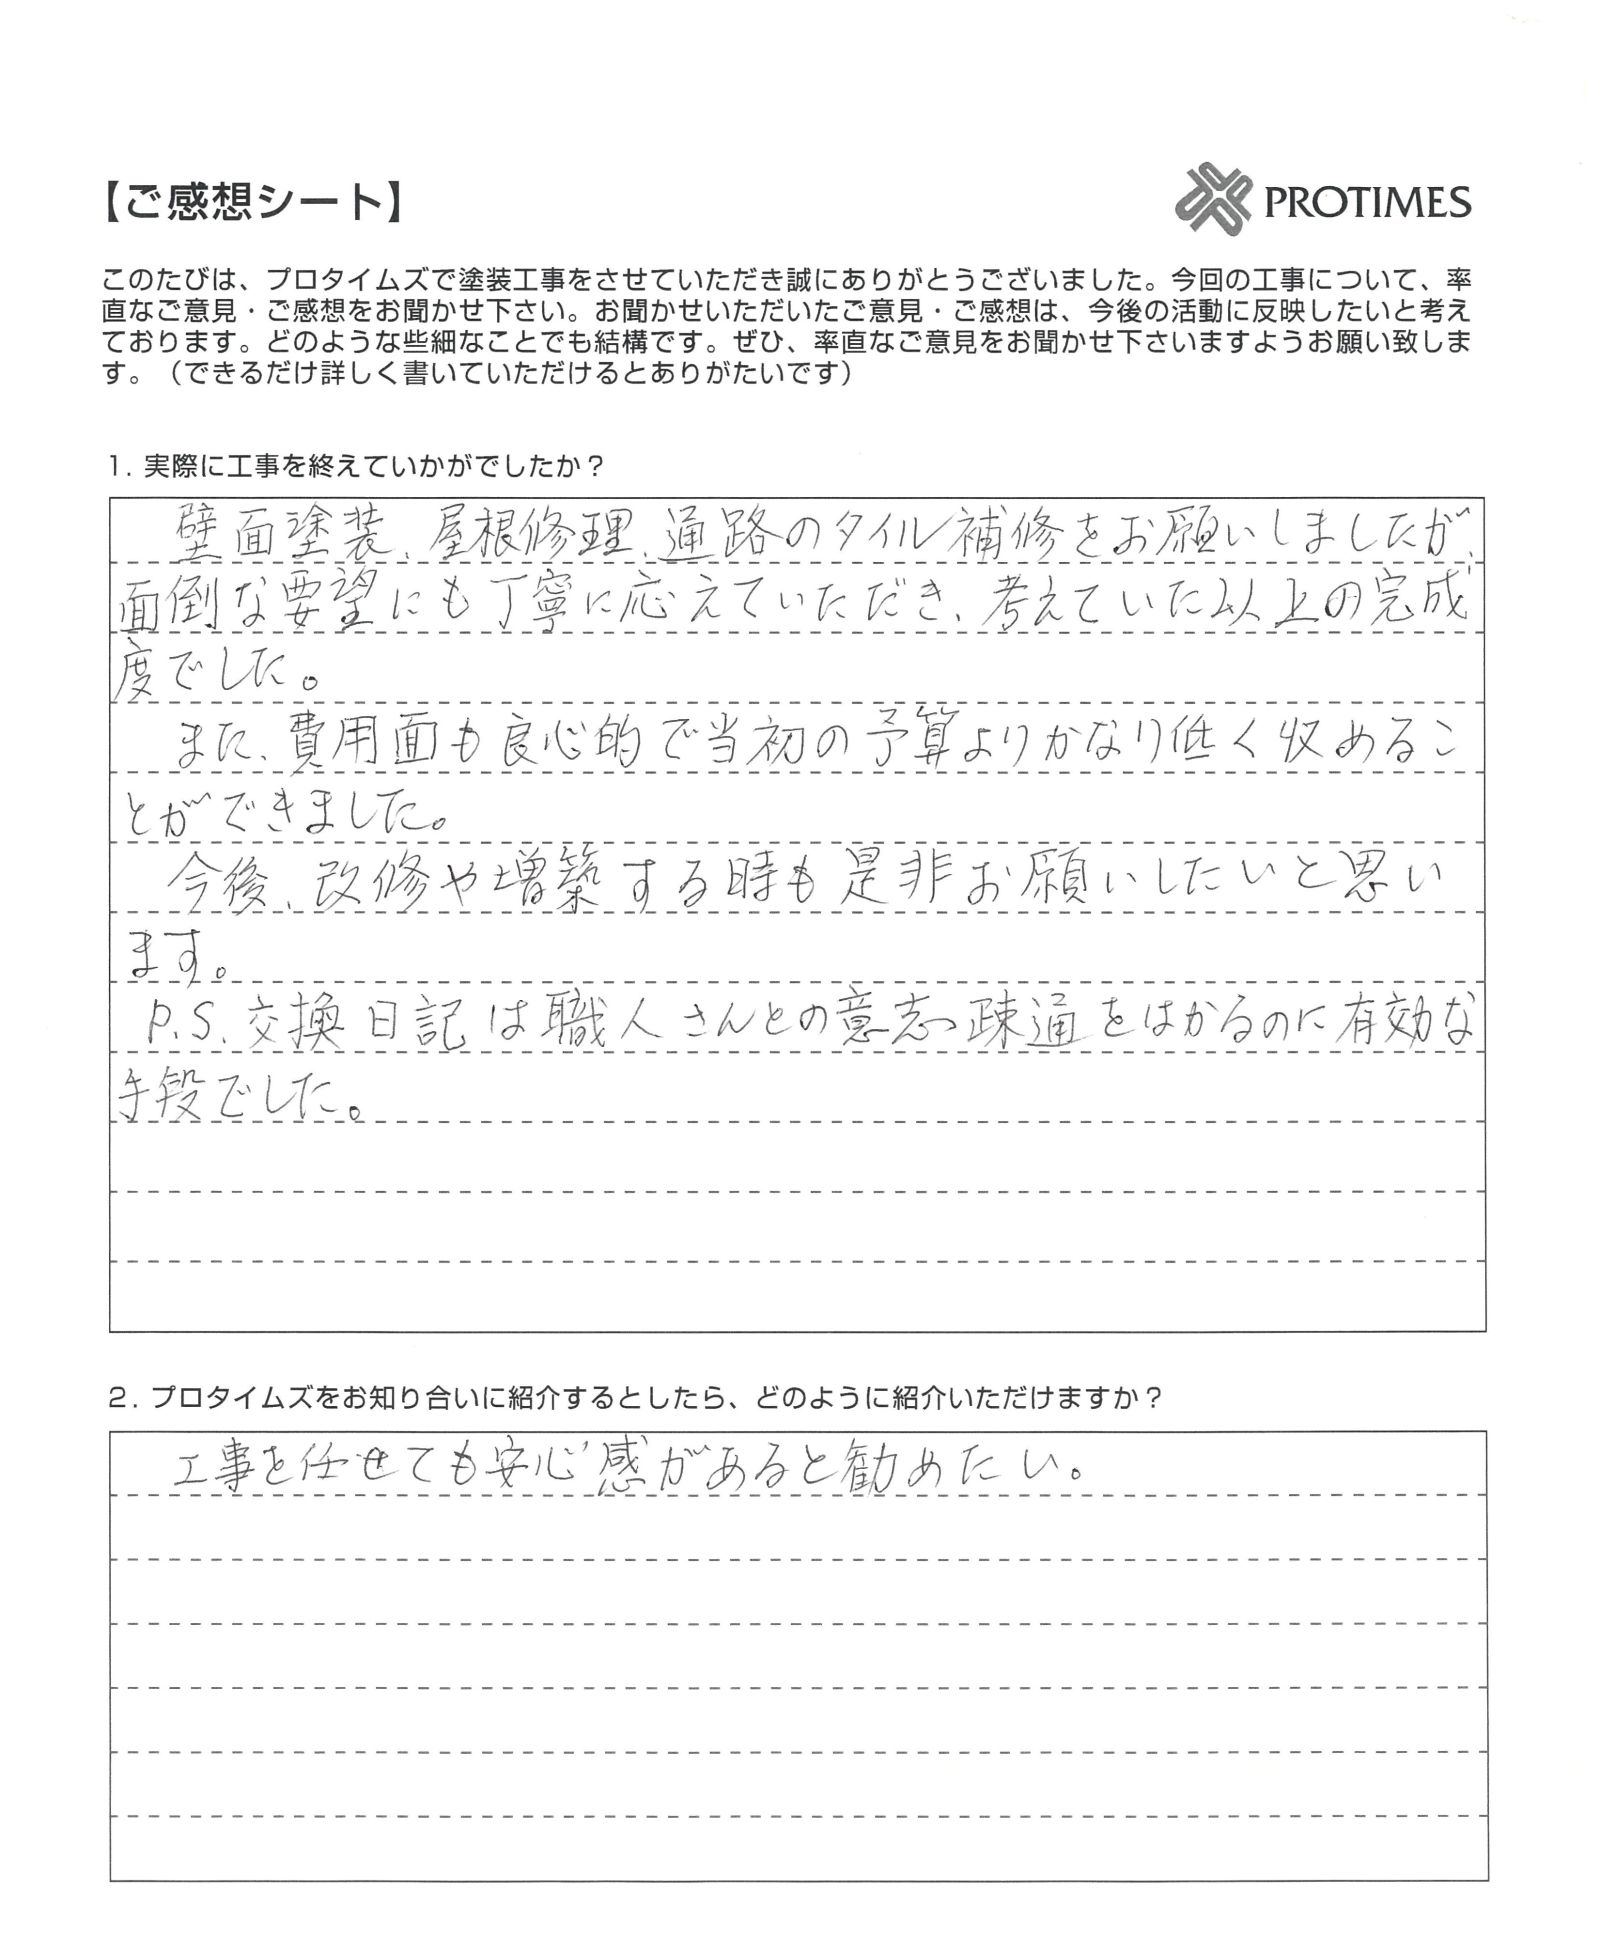 【ご感想シート】
PROTIMES
このたびは、プロタイムズで塗装工事をさせていただき誠にありがとうございました。今回の工事について、率
直なご意見・ご感想をお聞かせ下さい。お聞かせいただいたご意見・ご感想は、今後の活動に反映したいと考え
ております。どのような些細なことでも結構です。ぜひ、率直なご意見をお聞かせ下さいますようお願い致しま
す。（できるだけ詳しく書いていただけるとありがたいです）
1. 実際に工事を終えていかがでしたか？
壁面塗装、屋根修理、通路のタイル補修をお願いしましたが、
面倒な要望にも丁寧に応えていただき、考えていた以上の完成
度でした。
また、費用面も良心的で当初の予算よりかなり低く収めるこ
とができました。
今後、改修や増築する時も是非お願いしたいと思い
ます。
P.S.交換日記は職人さんとの意志疎通をはかるのに有効な
手段でした。
2. プロタイムズをお知り合いに紹介するとしたら、どのように紹介いただけますか？
工事を任せても安心感があると勧めたい。